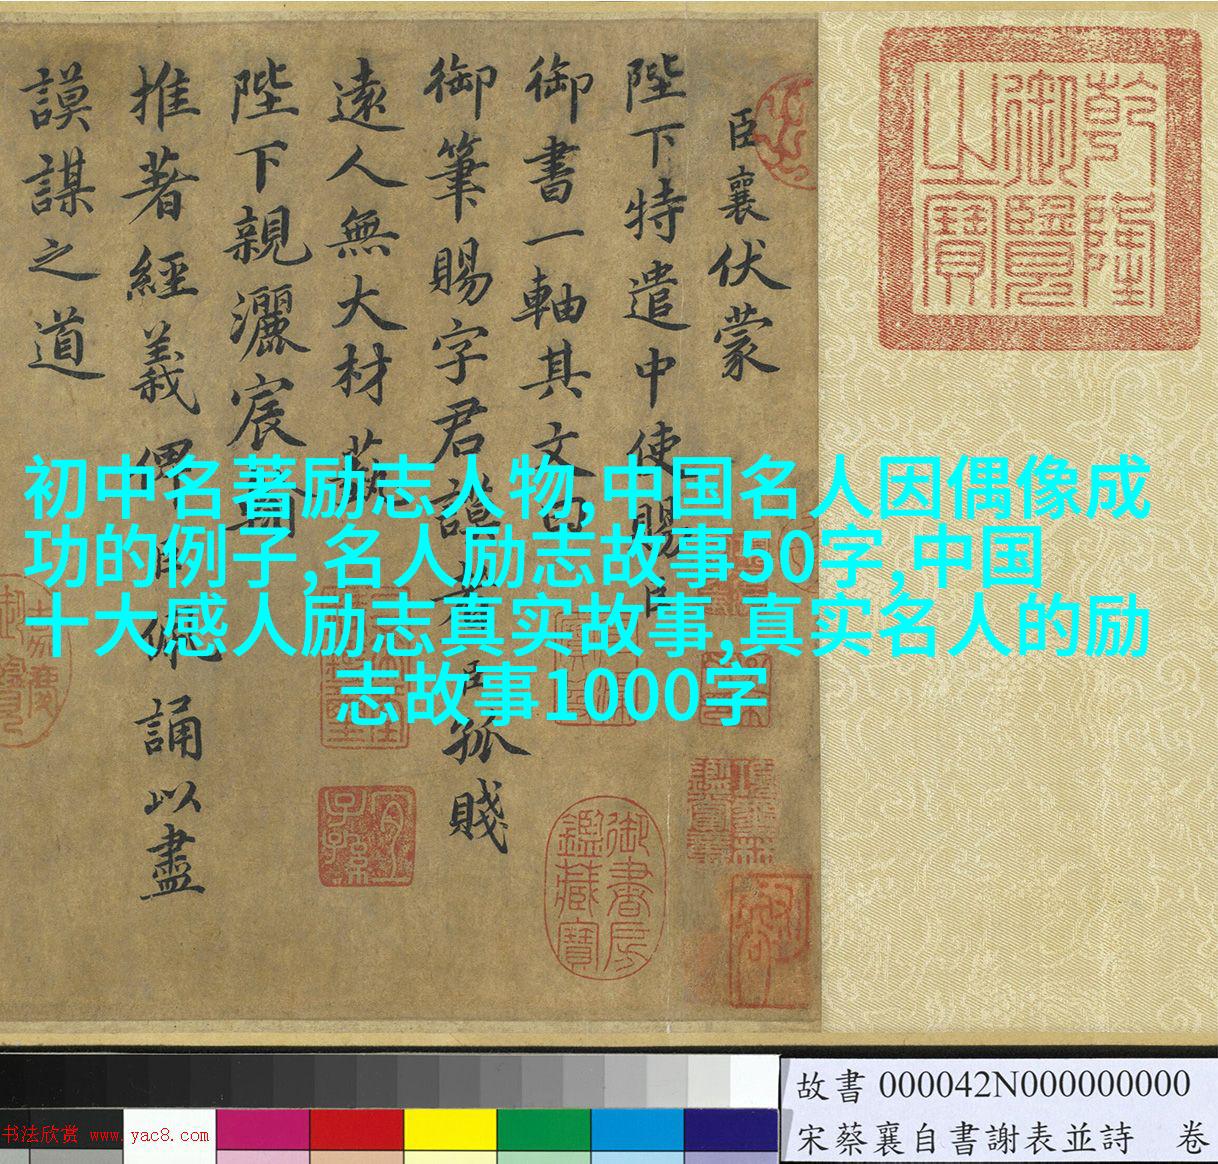 臣襄伏蒙
陛下特遣中使賜臣
御書一軸其文曰
御筆賜字君謨者臣孤賤
遠人無大材藝
陛下親灑宸翰
推著經義俾臣佩誦以盡
謨謀之道
乾隆
御覽
之寶
御書房
鑑藏寶
宜
子孫
初中名著励志人物,中国名人因偶像成
功的例子,名人励志故事50字,中国
十大感人励志真实故事,真实名人的励
志故事1000字
故書 000042N000000000
宋蔡襄自書謝表並詩 卷
书法欣赏 www.yac8.com